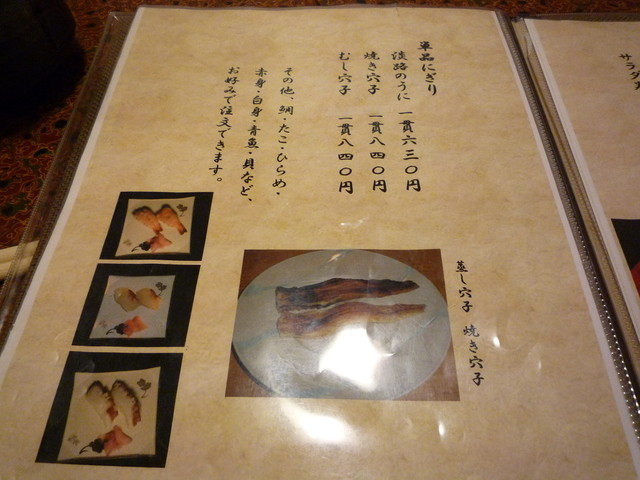 単品にぎり
淡路のうに 一貫六三〇円
焼き穴子 一貫八四〇円
むし穴子 一貫八四〇円
その他、鯛・たこ・ひらめ・
赤身・白身・青魚・貝など、
お好みで注文できます。
蒸し穴子 焼き穴子
サラダ